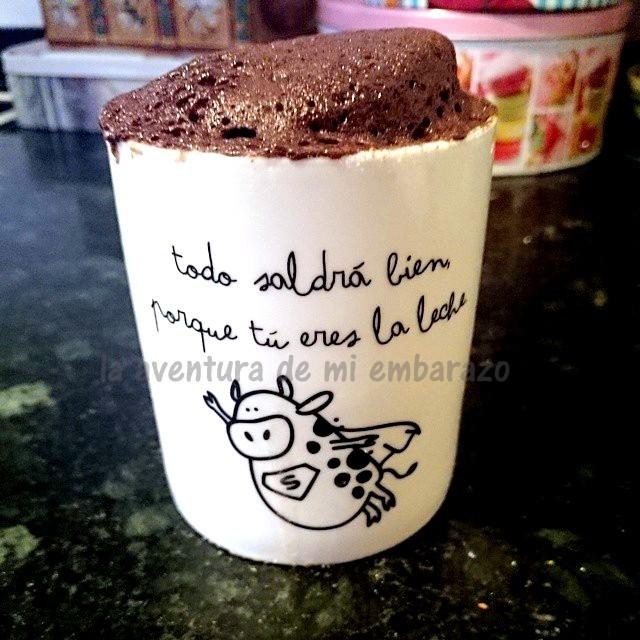 todo saldrá bien,
porque tú eres la leche
la aventura de mi embarazo
S